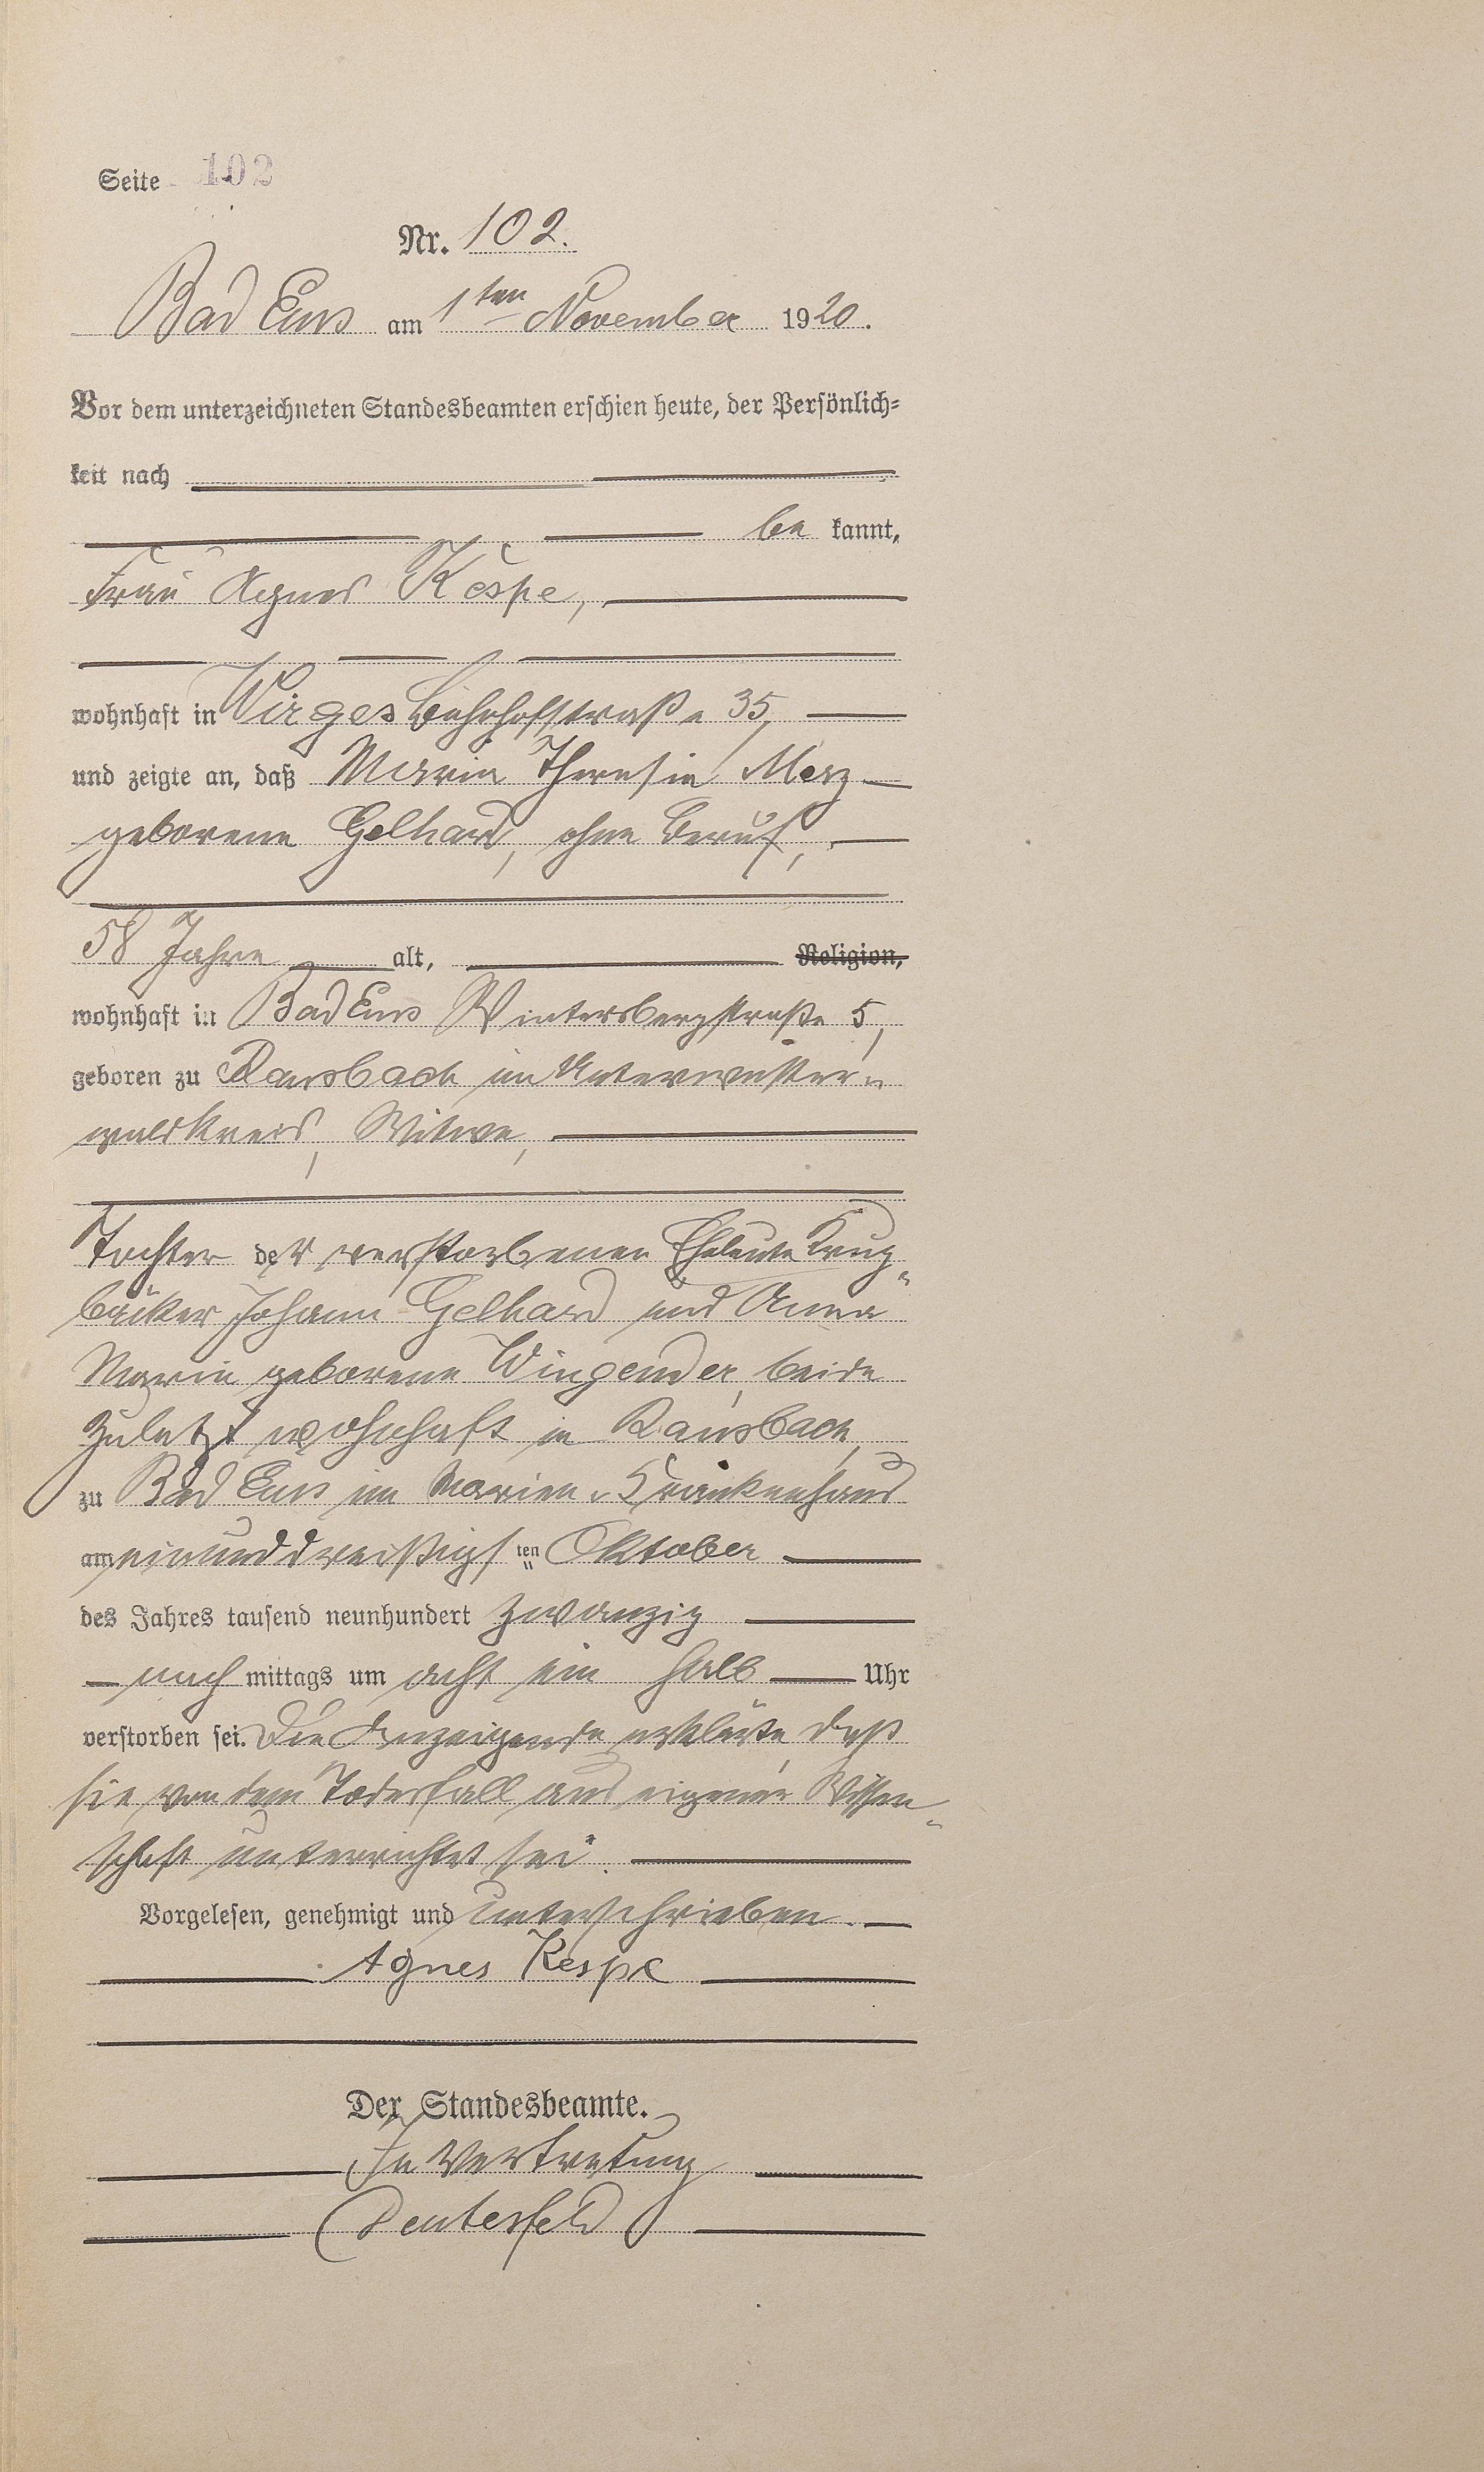 Seite 102
Nr. 102.
Bad Ems am 1ten November 1920.
Vor dem unterzeichneten Standesbeamten erschien heute, der Persönlich-
keit nach
be kannt,
Frau Agnes Kespe,
wohnhaft in Wirges Bahnhofstraße 35,
und zeigte an, daß Maria Theresia Merz
geborene Gelhard, ohne Beruf,
58 Jahre alt, Religion,
wohnhaft in Bad Ems Wintersbergstraße 5,
geboren zu Ransbach im Unterwester-
waldkreis, Witwe,
Tochter der verstorbenen Eheleute Krug-
bäcker Johann Gelhard und Anna
Maria geborene Wingender, beide
zuletzt wohnhaft in Ransbach,
zu Bad Ems im Marien-Krankenhaus
am einunddreißigsten Oktober
des Jahres tausend neunhundert zwanzig
nach mittags um acht ein halb Uhr
verstorben sei. Die Anzeigende erklärte, daß
sie von dem Todesfall aus eigener Wissen-
schaft unterrichtet sei.
Vorgelesen, genehmigt und unterschrieben.
Agnes Kespe
Der Standesbeamte.
In Vertretung